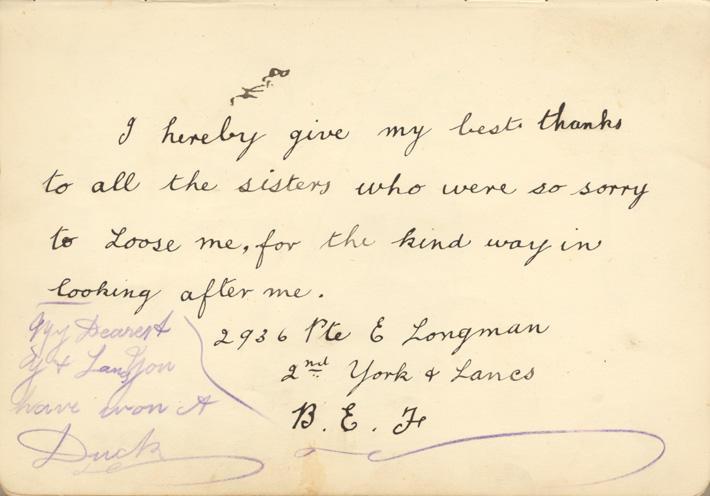 I hereby give my best thanks
to all the sisters who were so sorry
to Loose me, for the kind way in
looking after me.
2936 Pte E Longman
2nd York & Lancs
B. E. F
My Dearest
Y & Lancs you
have won A
Duck